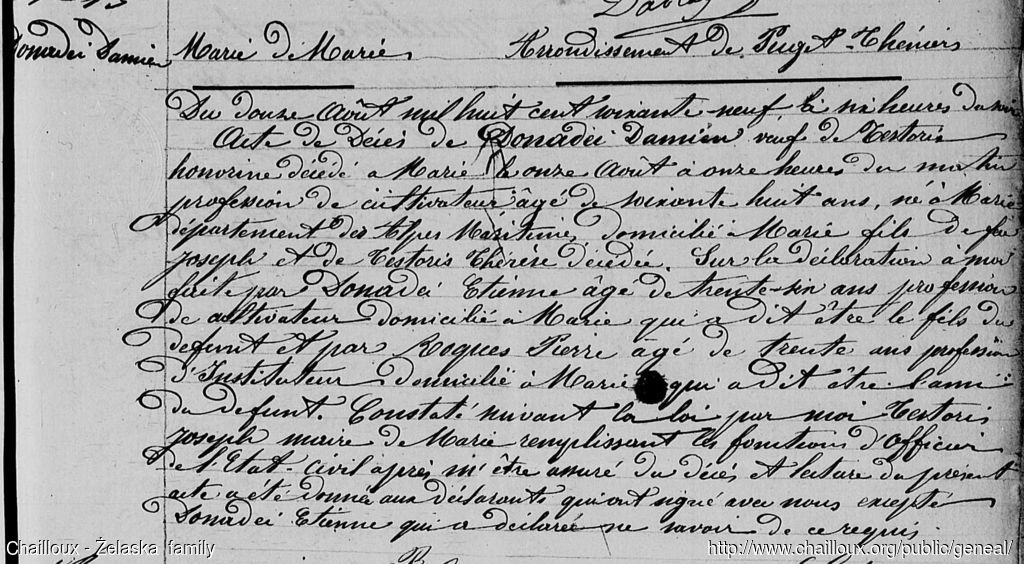 Donadei Damien
Mairie de Marie Arrondissement de Puget-Théniers
Du douze Août mil huit cent soixante-neuf, à six heures du soir
Acte de Décès de Donadei Damien veuf de Testoris
honorine décédé à Marie le onze Août à onze heures du matin
profession de cultivateur âgé de soixante huit ans, né à Marie
département des Alpes Maritimes, domicilié à Marie fils de feu
joseph et de Testoris Thérèse décédée. Sur la déclaration à moi
faite par Donadei Etienne âgé de trente-six ans profession
de cultivateur domicilié à Marie qui a dit être le fils du
défunt et par Roques Pierre âgé de trente ans profession
d'Instituteur domicilié à Marie qui a dit être l'ami
du défunt. Constaté suivant la loi par moi Testoris
Joseph maire de Marie remplissant les fonctions d'Officier
de l'Etat-Civil après m'être assuré du décès et lecture du présent
acte a été donnée aux déclarants qui ont signé avec nous excepté
Donadei Etienne qui a déclaré ne savoir de ce requis.
Chailloux - Żelaska family http://www.chailloux.org/public/geneal/